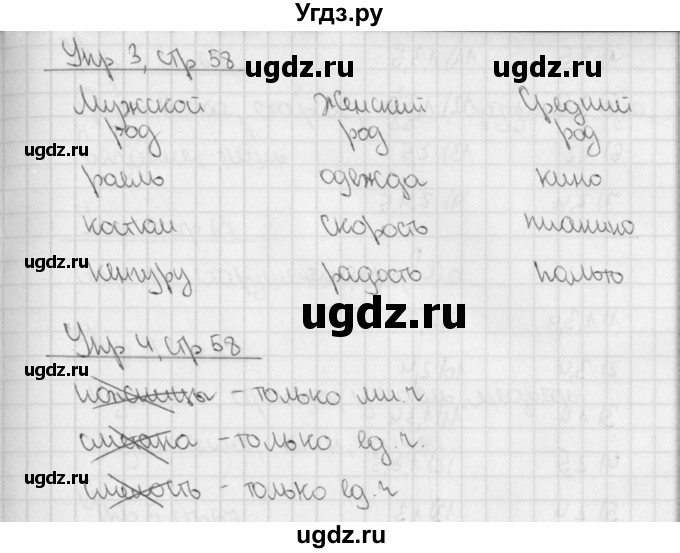 Угдз.ру
Упр 3, стр 58
ugdz.ru ugdz.ru
Мужской Женский Средний
род род род
ugdz.ru
рояль одежда кино
костюм скорость пианино
ugdz.ru
кенгуру радость пальто
ugdz.ru
Упр 4, стр 58
ugdz.ru
ножницы - только мн.ч
сметана - только ед.ч.
ugdz.ru
смелость - только ед.ч
ugdz.ru